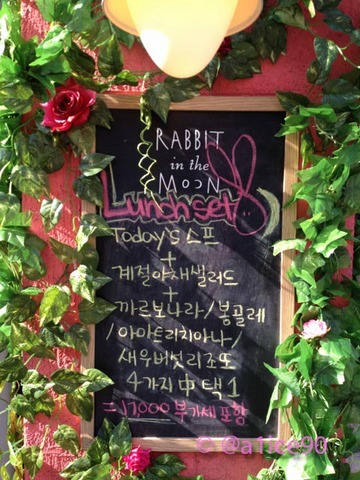 RABBIT
in the
MOON
Lunch set
Today's 스프
+
계절야채샐러드
+
까르보나라/봉골레
/아마트리치아나/
새우버섯리조또
4가지 中 택 1
=17,000 부가세 포함
© @a1lee90